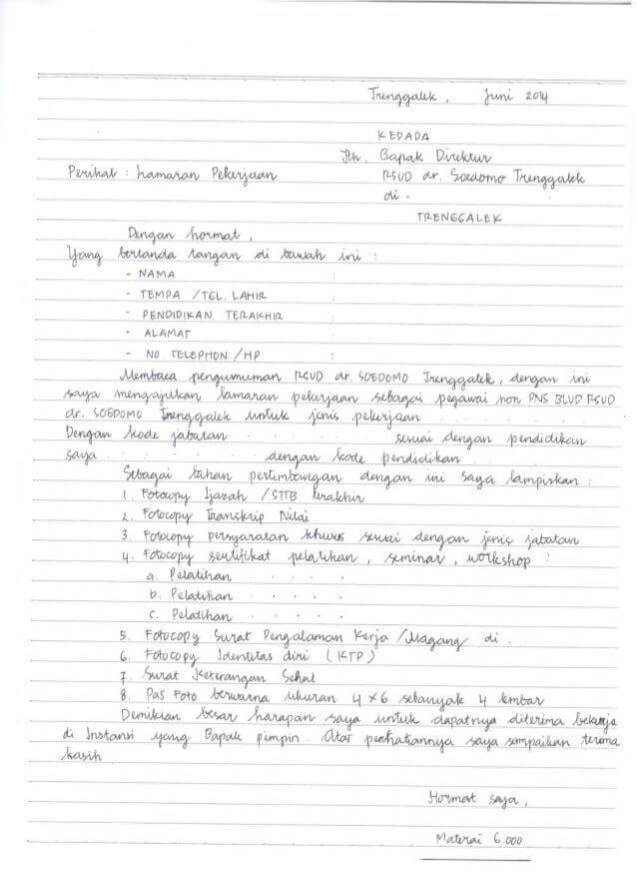 Trenggalek, Juni 2014
KEPADA
Yth. Bapak Direktur
Perihal : Lamaran Pekerjaan RSUD dr. Soedomo Trenggalek
di -
TRENGGALEK
Dengan hormat,
Yang bertanda tangan di bawah ini :
- NAMA :
- TEMPA /TGL. LAHIR :
- PENDIDIKAN TERAKHIR :
- ALAMAT :
- NO TELEPHON /HP :
Membaca pengumuman RSUD dr. SOEDOMO Trenggalek, dengan ini
saya mengajukan lamaran pekerjaan sebagai pegawai non PNS BLUD RSUD
dr. SOEDOMO Trenggalek untuk jenis pekerjaan . . . . . . .
Dengan kode jabatan . . . . . . . sesuai dengan pendidikan
saya . . . . . . . dengan kode pendidikan . . . . . . .
Sebagai bahan pertimbangan dengan ini saya lampirkan :
1. Fotocopy Ijazah /STTB terakhir
2. Fotocopy Transkrip Nilai
3. Fotocopy persyaratan khusus sesuai dengan jenis jabatan
4. Fotocopy sertifikat pelatihan, seminar, workshop :
a. Pelatihan . . . . .
b. Pelatihan . . . . .
c. Pelatihan . . . . .
5. Fotocopy Surat Pengalaman Kerja /Magang di .
6. Fotocopy Identitas diri (KTP)
7. Surat Keterangan Sehat
8. Pas Foto berwarna ukuran 4x6 sebanyak 4 lembar
Demikian besar harapan saya untuk dapatnya diterima bekerja
di Instansi yang Bapak pimpin. Atas perhatiannya saya sampaikan terima
kasih
Hormat saya,
Materai 6.000